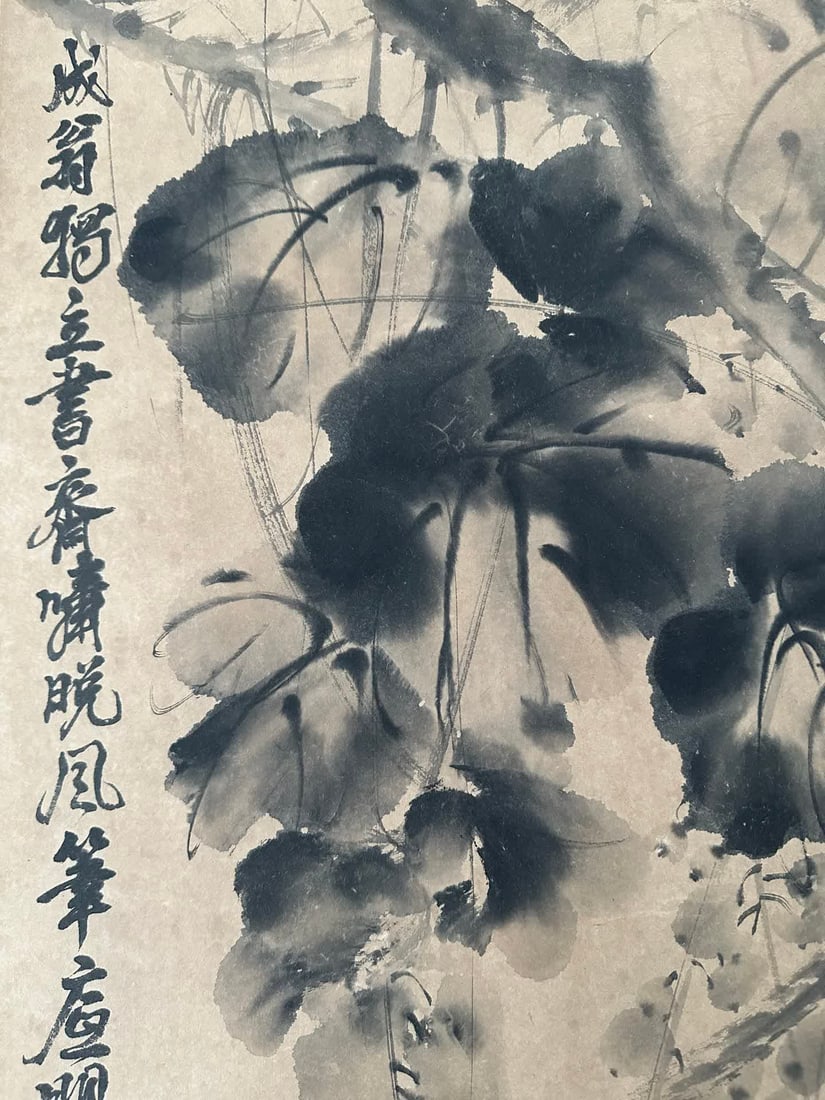 成翁獨立書齋嘯晚風筆底明